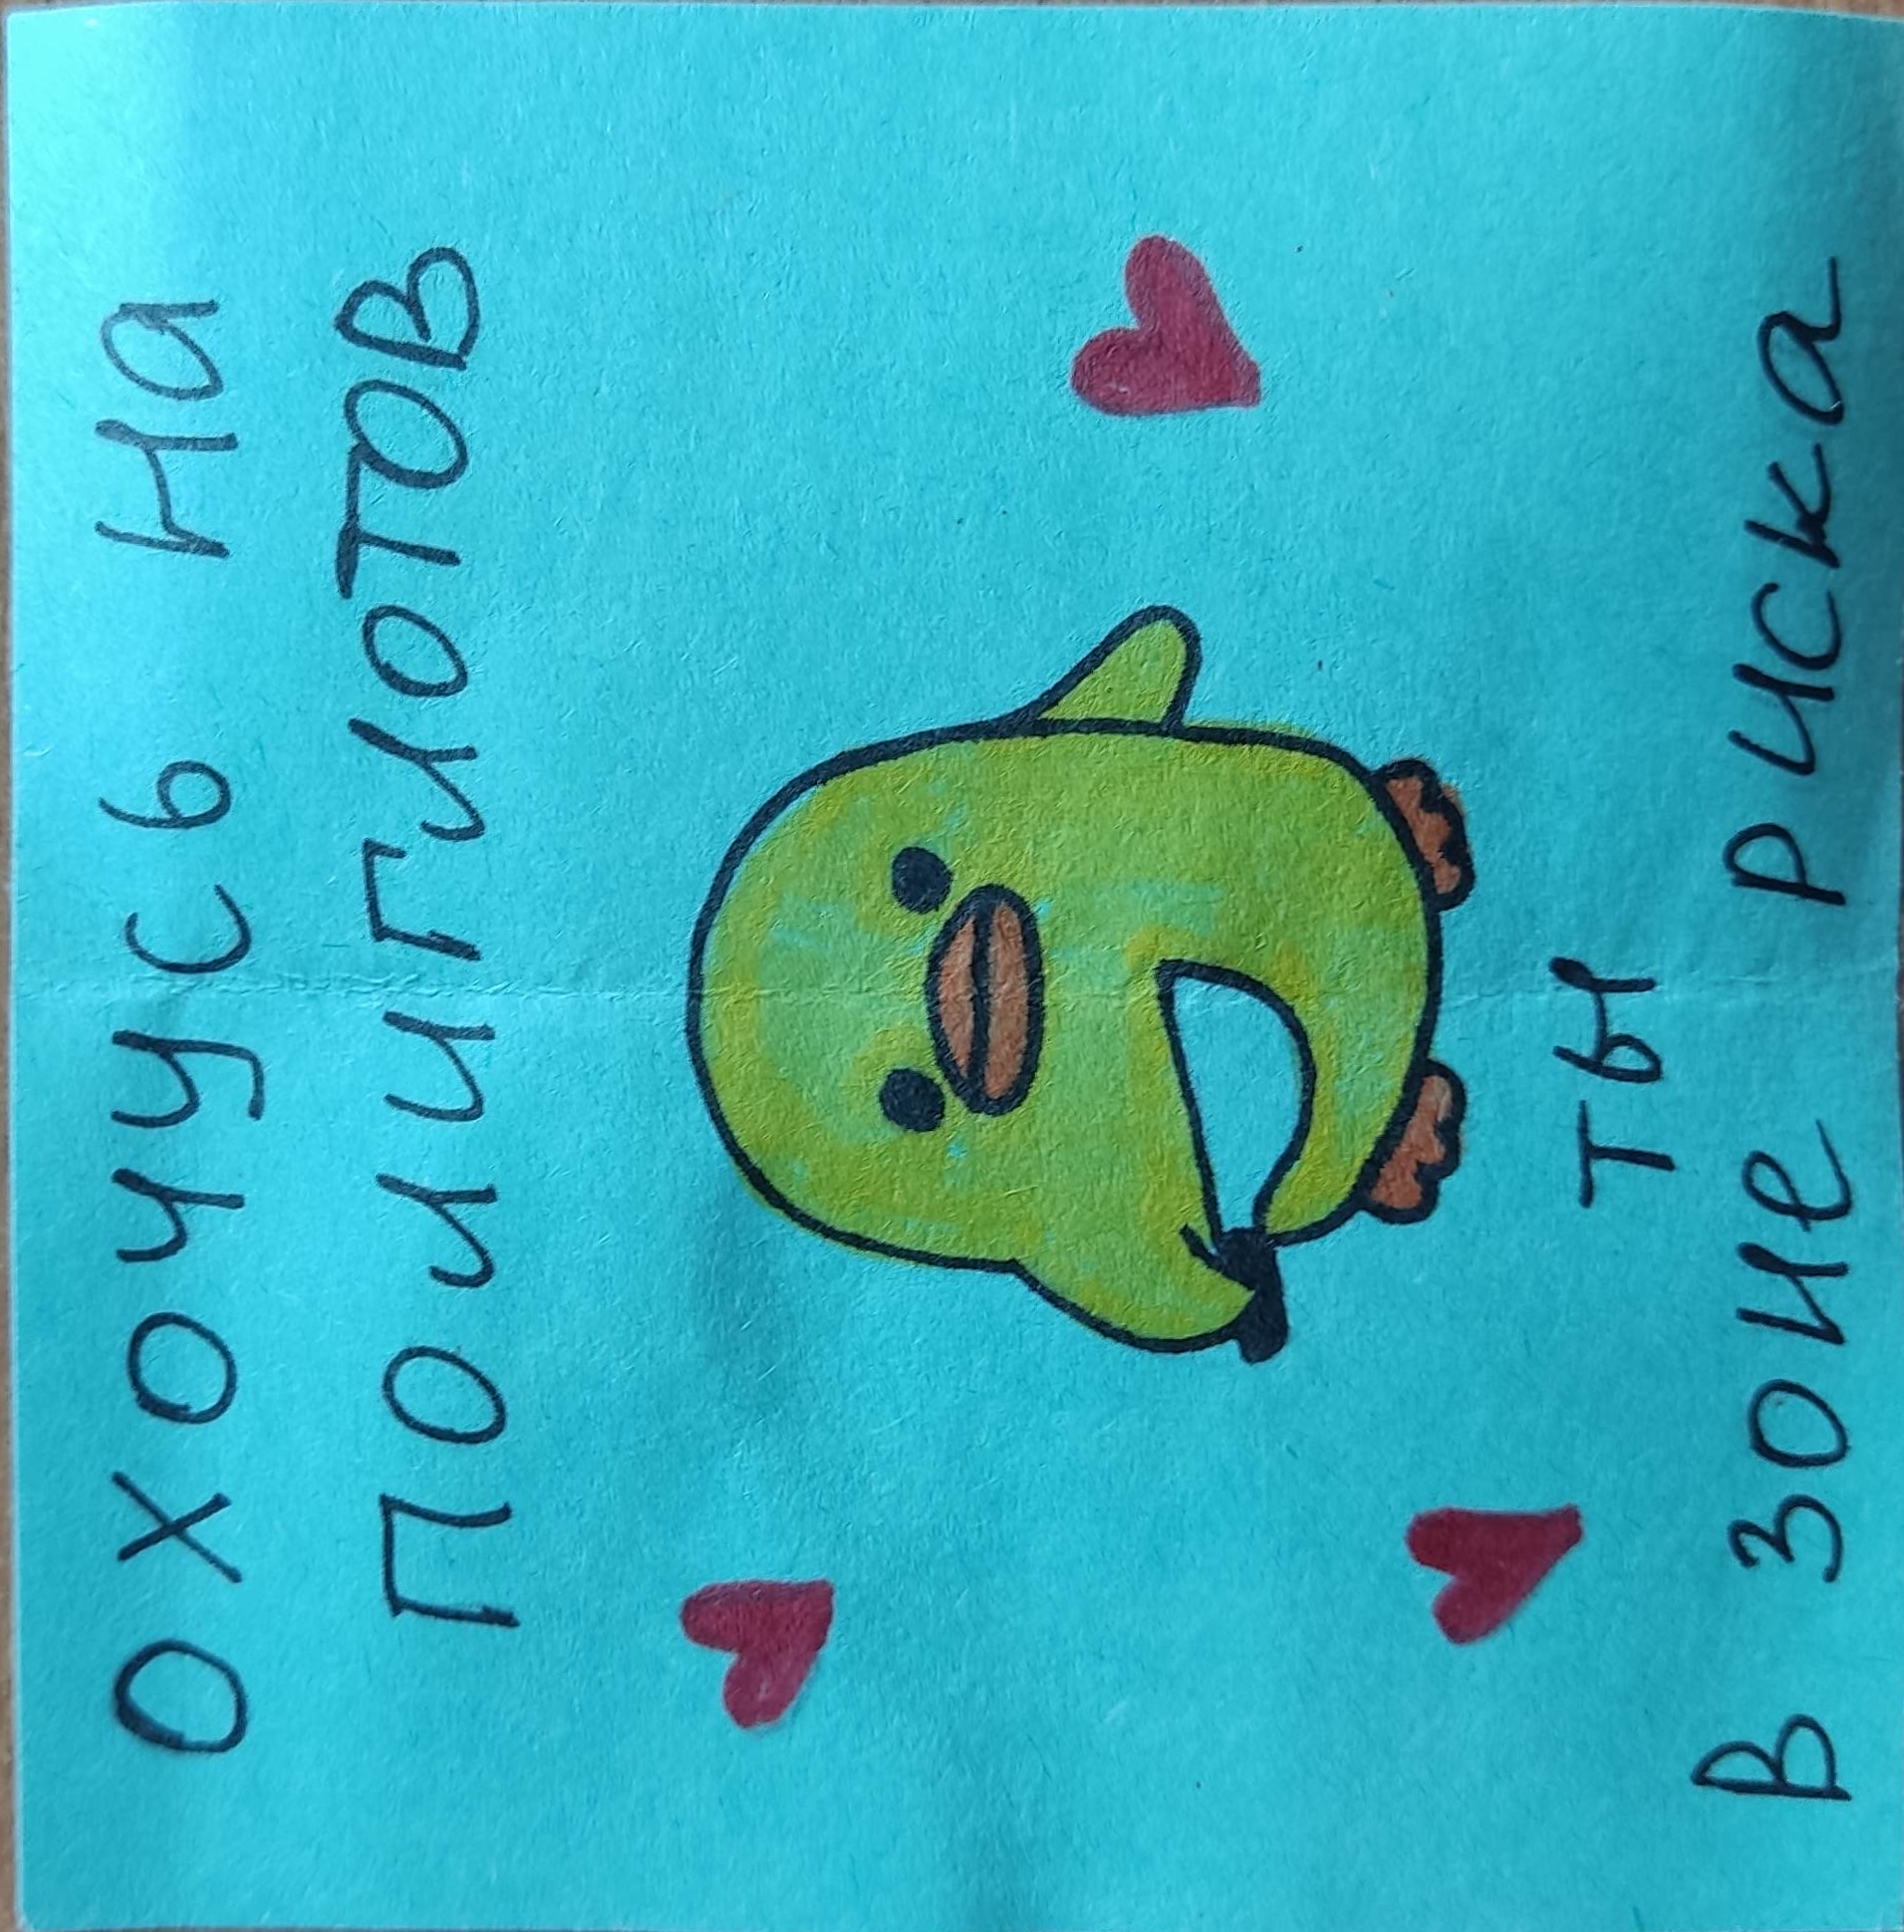 охочусь на
полиглотов
ты
в зоне риска